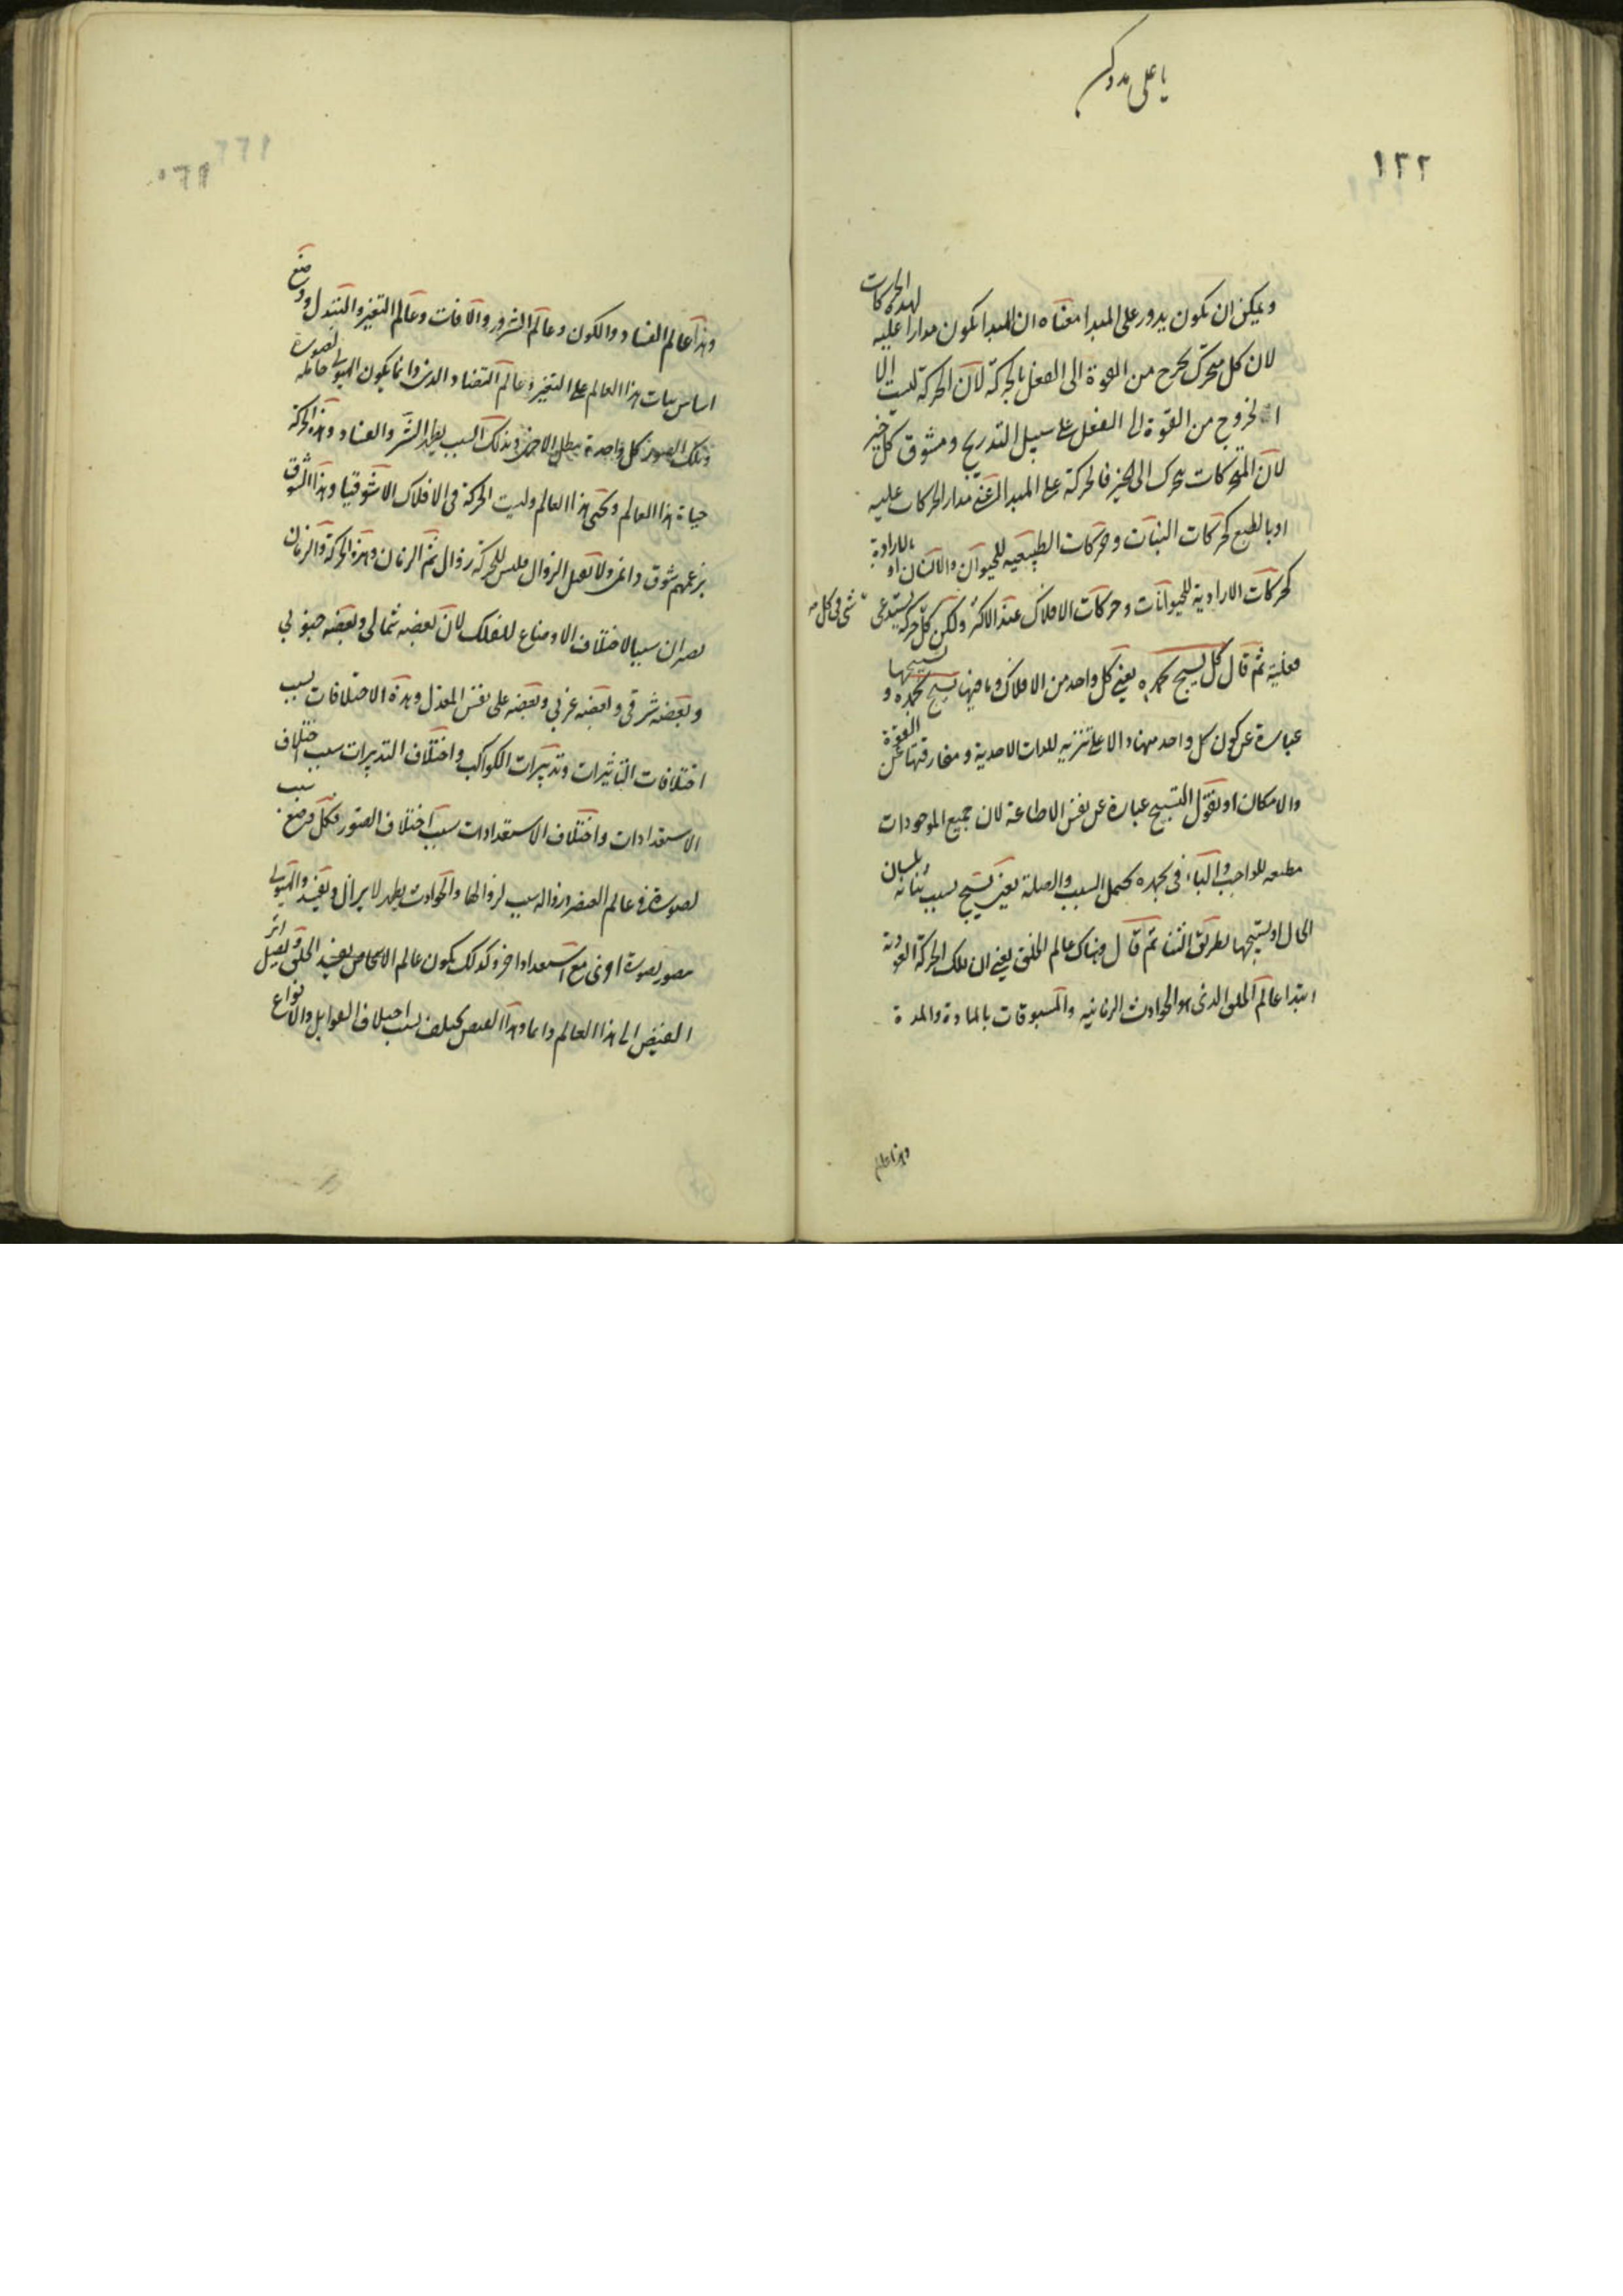 يا على مدد كن
١٣٢
ويمكن ان يكون يدور على المبدا معناه ان المبدا يكون مدارا عليه لهذه الحركات
لان كل متحرك يخرج من القوة الى الفعل بالحركة لان الحركة ليست الا
الخروج من القوة الى الفعل على سبيل التدريج ومشوق كل خير
لان المتحركات يتحرك الى الخير فالحركة على المبدا يعنى مدار الحركات عليه
او بالطبع كحركات النبات وحركات الطبيعيه للحيوان والانسان او بالارادية
كحركات الارادية للحيوانات وحركات الافلاك عند الاكثر ولكن كل حركة يستدعى شى فى كل
فعلية ثم قال كل يسبح بحمده يعنى كل واحد من الافلاك وما فيها يسبح بحمده و تسبيحها
عبارة عن كون كل واحد منها دالا على تنزيه للذات الاحدية ومفارقتها عن القوة
والامكان او نقول التسبيح عبارة عن نفس الاطاعة لان جميع الموجودات
مطيعه للواجب والباء فى بحمده يحتمل السبب والصلة يعنى يسبح بسبب ثنائه بلسان
الحال او يسبحها بطريق الثناء ثم قال وهناك عالم الخلق يعنى ان تلك الحركة الدورية
ابتدا عالم الخلق الذى هو الحوادث الزمانيه والمسبوقات بالمادة والمدة
وهذا عالم
وهذا عالم الفساد والكون وعالم الشرور والآفات وعالم التغير والتبدل ووضع
اساس بيات هذا العالم على التغير وعالم التضاد الذى وانما يكون الهيولى حاملة لصورة
وتلك الصور كل واحدة يبطل الاخرى وبذلك السبب يظهر الشر والفساد وهذه الحركة
حياة هذا العالم ويحيى هذا العالم وليست الحركة فى الافلاك الا شوقيا وهذا الشوق
بزعمهم شوق دائمى ولا تقبل الزوال فليس للحركة زوال ثم الزمان وهذه الحركة والزمان
يصيران سببا لاختلاف الاوضاع للفلك لان بعضه شمالى وبعضه جنوبى
وبعضه شرقى وبعضه غربى وبعضه على نفس المعدل وهذه الاختلافات بسبب
اختلافات التاثيرات وتدبيرات الكواكب واختلاف التدبيرات سبب اختلاف
الاستعدادات واختلاف الاستعدادات سبب اختلاف الصور فكل وضع سبب
لصورة فى عالم العنصر وزواله سبب لزوالها والحوادث يظهر لا يزال ويفيد والهيولى
مصور بصورة اخرى مع استعداد اخر وكذلك يكون عالم الاشخاص يفيد الخلق ويصل اثر
الفيض الى هذا العالم دايما وهذا الفيض يختلف بسبب اختلاف القوابل والانواع